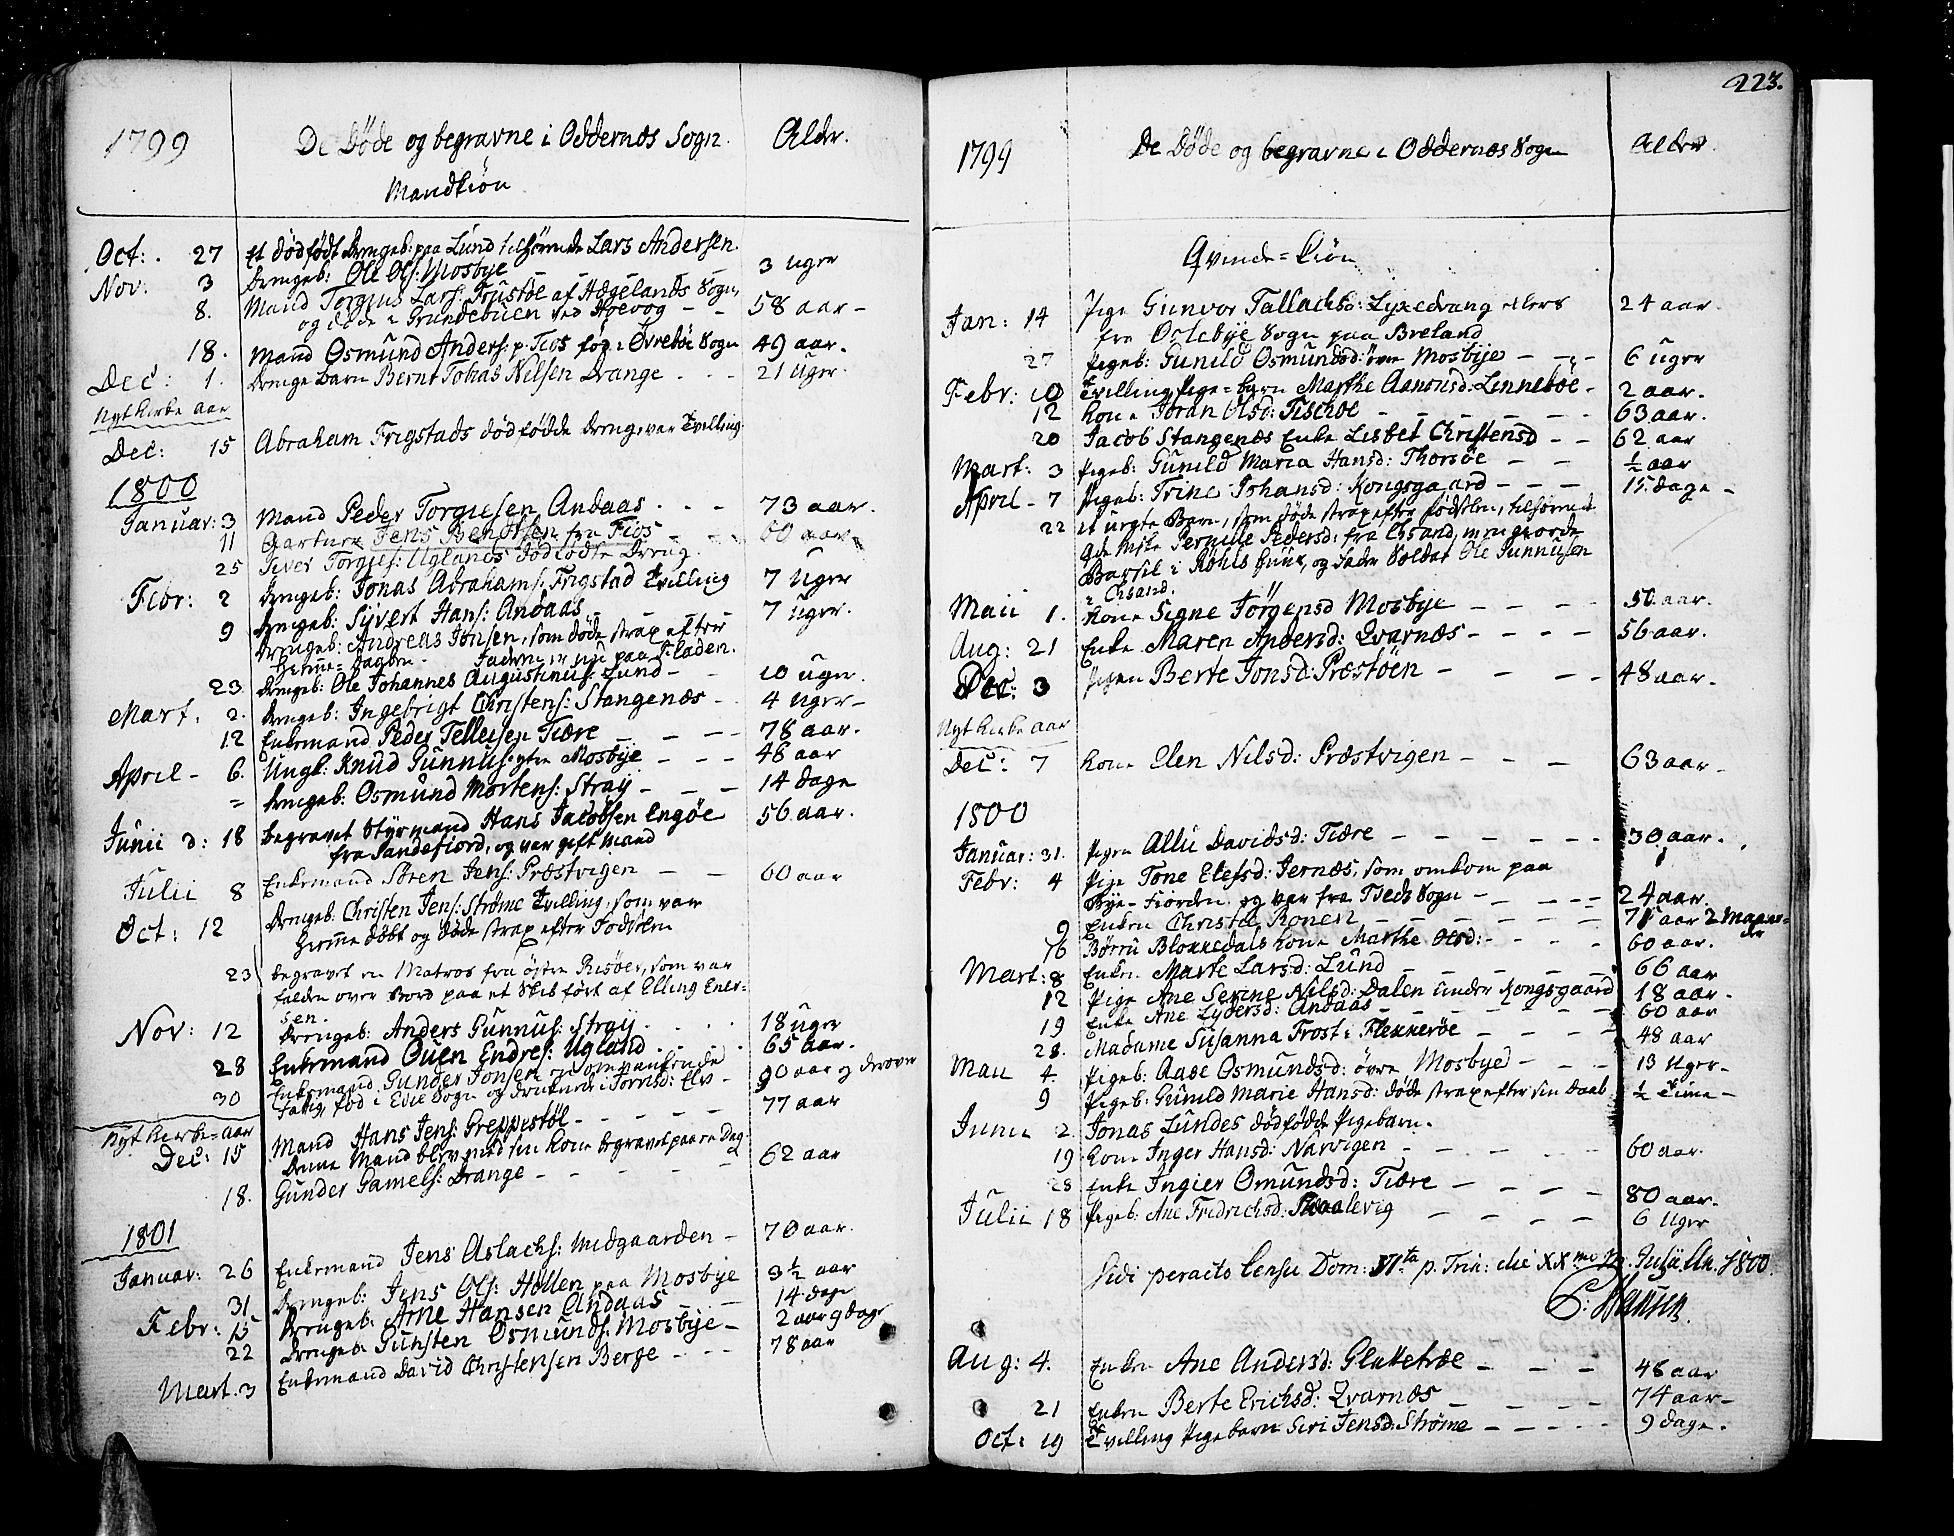 1799 De Døde og begravne i Oddernæs Sogn. Aldr.
Mandkiøn
Oct: 27 Et dødfødt drengeb: paa Lund tilhørende Lars Andersen.
Nov: 3 drengeb: Ole Ols: Mosbye 3 uger
8. Mand Torgius Lars: af Hægelands Sogn,
og døde i Høevog 58 aar
18. Mand Osmund Anders: p: Fios føg i Øvrebøe Sogn 49 aar.
Dec: 1. drenge barn Bernt Tobias Nilsen Drange 21 Uger.
Nyt Kirke aar
Dec: 15 Abraham Frigstads dødfødde dreng, var Tvilling
1800
Januar: 3 Mand Peder Torgiesen Andaas 73 aar.
11 Jens fra Fios 60 aar
25 Siver Torgils: Uglands dødfødte Dreng
Febr: 2 drengeb: Jonas Abrahams: Frigstad Tvilling 7 Uger
9 drengeb: Syvert Hans: Andaas 7 Uger.
drengeb: Andreas Jonsen, som døde strax efter
Hjemme-Daaben. Faderen er nu paa Fladen.
23 drengeb: Ole Johannes Augustinus: Lund 10 uger.
Mart. 2. drengeb: Ingebrigt Christens: Stangenæs 4 Uger
12 Enkemand Peder Tellefsen Tiære 78 aar.
April 6. Ungk: Knud Gunnufs: ytre Mosbye 46 aar
= drengeb: Osmund Mortens: Straÿ 14 dage
Junii d: 18 begravet Styrmand Hans Jacobsen Engøe 56 aar.
fra Sandefiord, og var gift Mand
Julii 8 Enkemand Søren Jens: Præstvigen 60 aar
Oct: 12 drengeb: Christen Jens: Strøme Tvilling, som var
hjemme døbt og døde strax efter Fødselen
23 begravet en Matros fra øster Risøer, som var
falden over Bord paa et Skib ført af Elling Ener-
sen.
Nov: 12 drengeb: Anders Gunnufs: Straÿ 18 uger
28 Enkemand Ouen Endres: Ugland 65 aar.
30 Enkemand Gunder Jonsen 90 aar og derover
fattig, fød i Evie Sogn og druknede i Torrisd: Elv
Nyt Kirke-aar 77 aar
Dec: 15 Mand Hans Jens: Greppestøl
Denne Mand blev med sin Kone begravet paa en Dag
18. Gunder Gamels: Drange 62 aar
1801
Januar: 26 Enkemand Jens Aslachs: Midgaarden 70 aar.
31 drengeb: Jens Ols: Hollen paa Mosbye 3½ aar
Febr: 15 drengeb: Arne Hansen Andaas 14 dage
22 drengeb: Gunsten Osmunds: Mosbye 2 aar 9 dage
Mart. 3 Enkemand David Christensen Berge 78 aar
223.
1799 De Døde og begravne i Oddernæs Sogn Aldr.
Qvinde=Kiøn
Jan: 14 Pige Gunvor Tallachsd: ellers 24 aar.
fra Sogn paa Breland
27 Pigeb: Gunild Osmundsd: øvre Mosbye 6 uger
Febr: 10 Tvilling Pige=barn Marthe Aanonsd: Linnebøe 2 aar.
12 Kone Jøran Olsd: 63 aar.
20 Jacob Stangenæs Enke Lisbet Christensd 62 aar
Mart: 3 Pigeb: Gunild Maria Hansd: Thorsøe ½ aar
April 7 Pigeb: Trine Johansd: Kongsgaard 15 dage
22 et uægte Barn, som døde strax efter fødselen, tilhørende
Pernille Pedersd: fra Chsand, men giorde
Barsel i Huus, og fader Soldat Ole Gunnusen
i Chsand.
Maii 1. Kone Signe Jørgensd Mosbye 50 aar.
Aug: 21 Enke Maren Andersd: Qvarnæs 56 aar.
Dec: 3 Pigen Berte Jonsd: Præstøen 48 aar.
Nyt Kirke aar
Dec: 7 Kone Elen Nilsd: Præstvigen 63 aar
1800
Januar: 31. Pigen Allu Davidsd: Tiære 30 aar.
Febr: 4 Pige Tone Elefsd: Jernæs, som omkom paa
Bye-Fiorden og var fra Sogn 24 aar.
9 Enken Christa Konen 71 aar 2 Maane-
der
16 Børru Blokkedals kone Marthe Olsd: 60 aar.
Mart: 8 Enken Marte Larsd: Lund 66 aar
12 Pige Ane Serine Nilsd: Dalen under Kongsgaard 18 aar.
19 Enke Ane Lydersd: Andaas 60 aar
28. Madame Susanna Frost i Flekkerøe 48 aar
Maii 4. Pigeb: Aase Osmundsd: øvre Mosbye 13 Uger
9 Pigeb: Gunild Marie Hansd: døde strax efter sin daab ½ Time
Junii 2. Jonas Lundes dødfødde Pigebarn.
19 Kone Inger Hansd: Narvigen 60 aar.
28 Enke Ingier Omundsd: Tiære 80 aar.
Julii 18 Pigeb: Ane Fridrichsd: 6 Uger
Vidi peracto Censu Dom: VIta p. Trin: die XXmo m. Julij An. 1800.
P: Hansen.
Aug: 4. Enken Ane Andersd: Glattetræe 48 aar
21 Enken Berte Erichsd: Qvarnæs 74 aar
Oct: 19 Tvilling Pigebarn Siri Jensd: Strøme 9 dage.